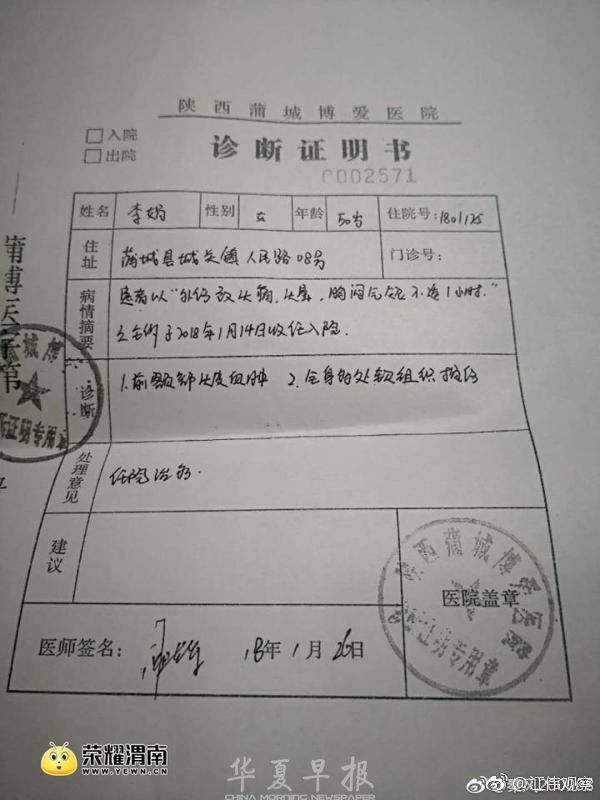 陕西蒲城博爱医院
入院
出院
诊断证明书
0002571
姓名 李娟 性别 女 年龄 50岁 住院号:1801125
住址 蒲城县城关镇人民路08号 门诊号:
病情摘要 患者以“外伤致头痛、头晕、胸闷气短不适1小时。”
之主诉于2018年1月14日收住入院.
诊断 1.前额部头皮血肿 2.全身多处软组织损伤
处理意见 住院治疗.
建议
医院盖章
医师签名: 18年1月26日
荣耀渭南
WWW.YEWN.CN
华夏早报
CHINA MORNING NEWSPAPER
@江伟观察